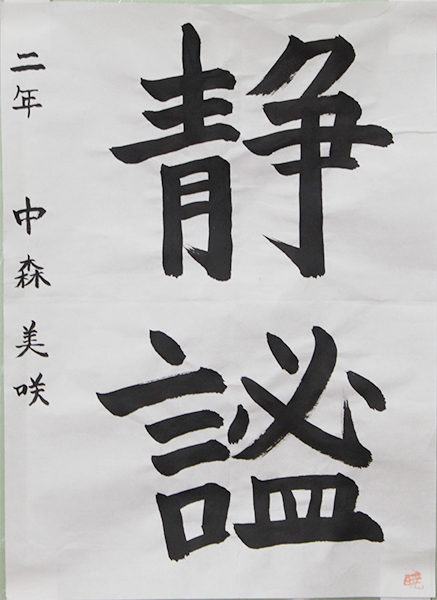 静謐
二年 中森美咲